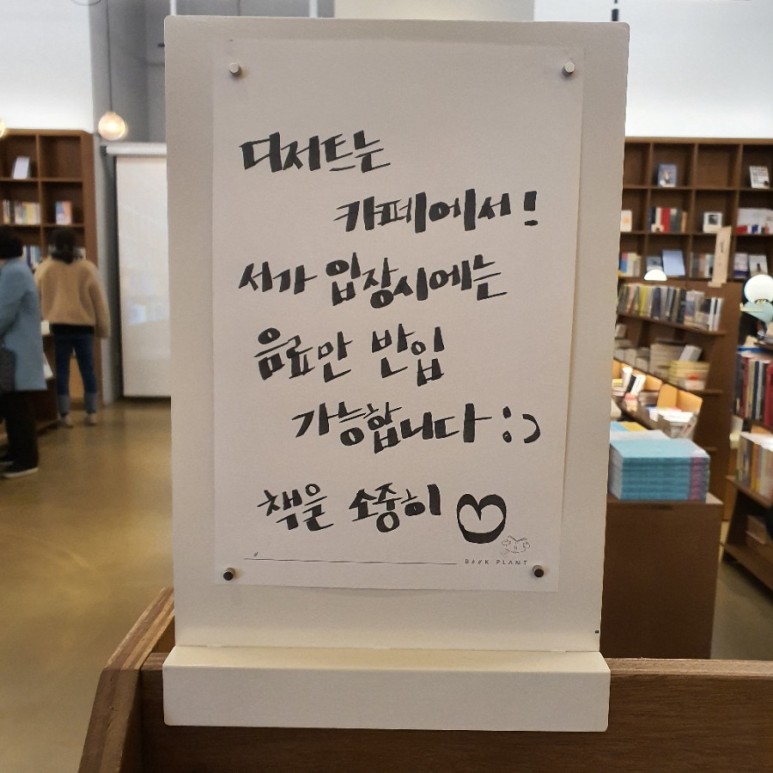 디저트는
카페에서!
서가 입장시에는
음료만 반입
가능합니다 :)
책을 소중히 ♡
BOOK PLANT